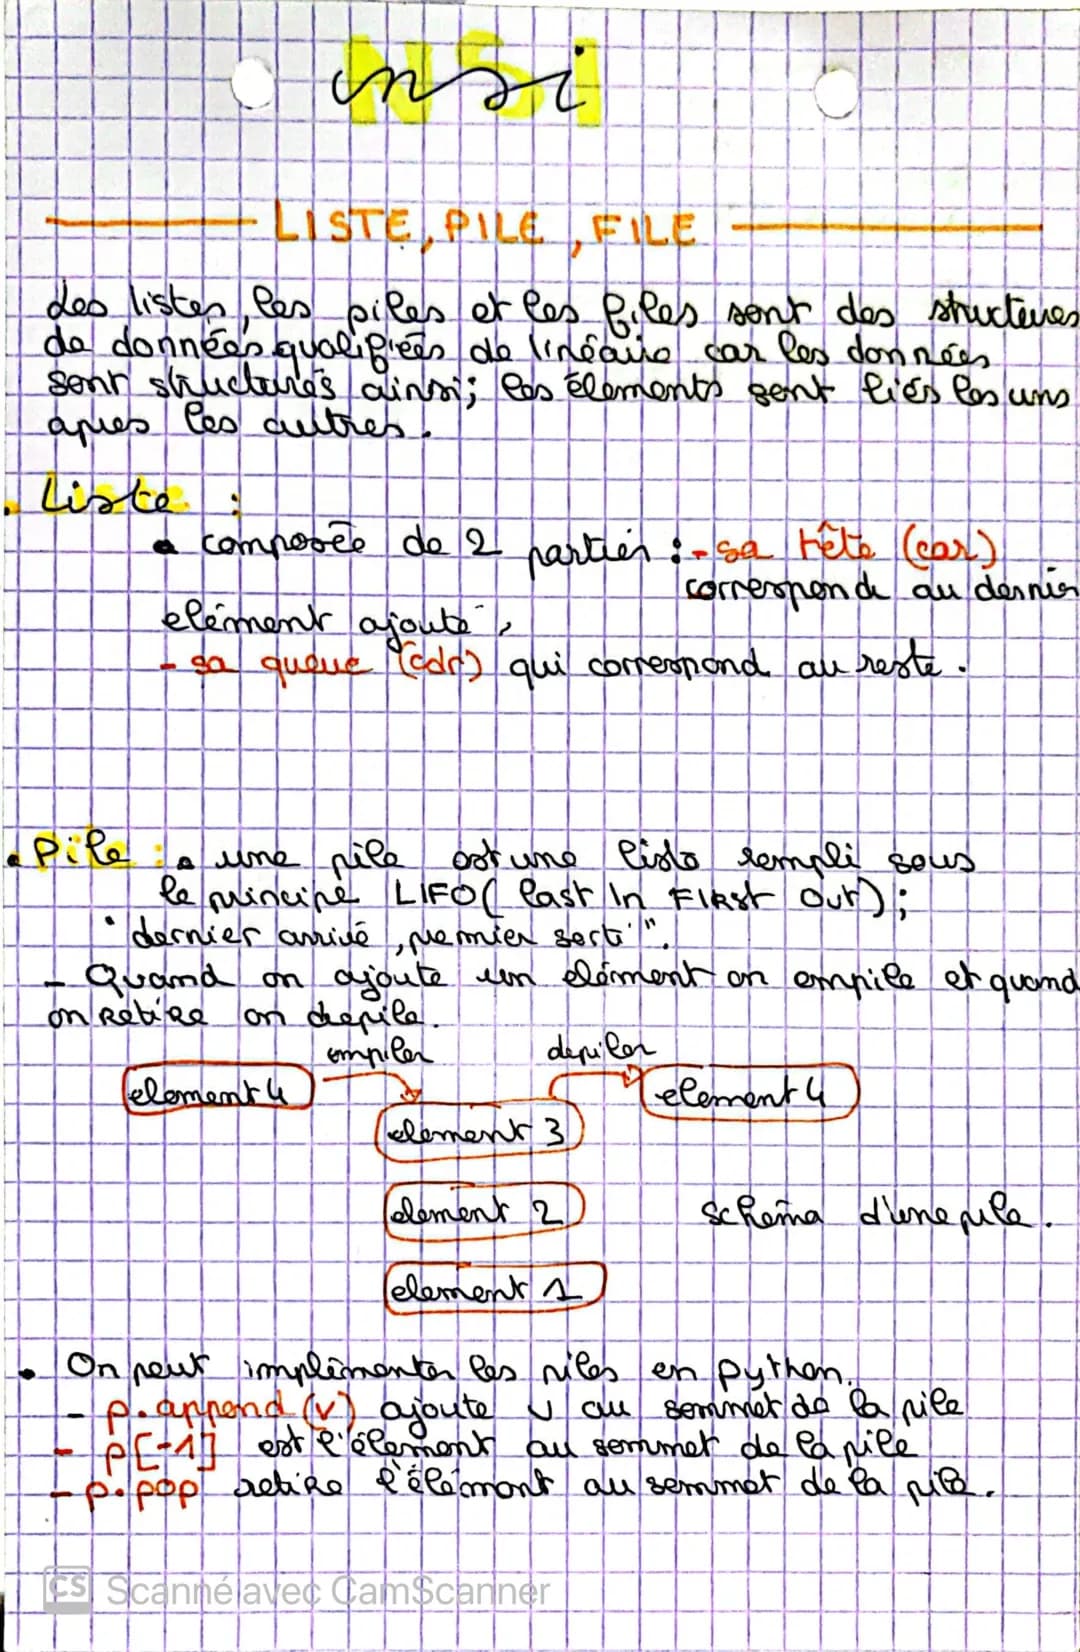 NSI
nsi
LISTE, PILE, FILE
Les listes, les piles et les files sont des structures
de données qualifiées de linéaire car les données
sont structurés ainsi; les élements sont liés les uns
apres les autres.
Liste :
composée de 2 parties : - sa tête (car)
correspond au dernier
elément ajouté,
- sa queue (cdr) qui correspond au reste.
Pile : une pile est une liste rempli sous
le principe LIFO( last In FIRst Out);
"dernier arrivé, premier sorti".
- Quand on ajoute un elément on empile et quand
on Retire on depile.
empiler depiler
element 4 element 4
element 3
element 2 schema d'une pile.
element 1
• On peut implémenter les piles en python.
- p.append(v) ajoute v au sommet de la pile
- p[-1] est l'élement au sommet de la pile
- p.pop retire l'élément au sommet de la pile.
CS Scanné avec CamScanner